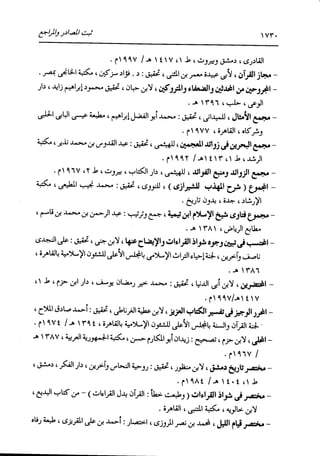 ١٧٣٠ ثبت المصادر والمراجع
القادري، دمشق وبيروت، ط١، ١٤١٧ هـ / ١٩٩٧ م.
- مجاز القرآن، لأبي عبيدة معمر بن المثنى، تحقيق: د. فؤاد سزكين، مكتبة الخانجي بمصر.
- المجروحين من المحدثين والضعفاء والمتروكين، لابن حبان، تحقيق محمود إبراهيم زايد، دار
الوعي، حلب، ١٣٩٦ هـ.
- مجمع الأمثال، للميداني، تحقيق: محمد أبو الفضل إبراهيم، مطبعة عيسى البابي الحلبي
وشركاه، القاهرة، ١٩٧٧ م.
- مجمع البحرين في زوائد المعجمين، للهيثمي، تحقيق: عبد القدوس بن محمد نذير، مكتبة
الرشد، ط١، ١٤١٣ هـ / ١٩٩٢ م.
- مجمع الزوائد ومنبع الفوائد، للهيثمي، دار الكتاب، بيروت، ط٢، ١٩٦٧ م.
- المجموع (شرح المهذب للشيرازي)، للنووي، تحقيق: محمد نجيب المطيعي، مكتبة
الإرشاد، جدة، دون تاريخ.
- مجموع فتاوى شيخ الإسلام ابن تيمية، جمع وترتيب: عبد الرحمن بن محمد بن قاسم،
مطابع الرياض، ١٣٨١ هـ.
- المحتسب في تبيين وجوه شواذ القراءات والإيضاح عنها، لابن جني، تحقيق: علي النجدي
ناصف وآخرين، لجنة إحياء التراث الإسلامي بالمجلس الأعلى للشئون الإسلامية بالقاهرة،
١٣٨٦ هـ.
- المحتضرين، لابن أبي الدنيا، تحقيق: محمد خير رمضان يوسف، دار ابن حزم، ط١،
١٤١٧ هـ/١٩٩٧ م.
- المحرر الوجيز في تفسير الكتاب العزيز، لابن عطية الغرناطي، تحقيق: أحمد صادق الملاح،
لجنة القرآن والسنة بالمجلس الأعلى للشئون الإسلامية بالقاهرة، ١٣٩٤ هـ / ١٩٧٤ م.
- المحلى، لابن حزم، تصحيح: زيدان أبو المكارم حسن، مكتبة الجمهورية العربية، ١٣٨٧ هـ
/ ١٩٦٧ م.
- مختصر تاريخ دمشق، لابن منظور، تحقيق: روحية النحاس وآخرين، دار الفكر، دمشق،
ط١، ١٤٠٤ هـ / ١٩٨٤ م.
- مختصر في شواذ القراءات (وطبعت خطأ: القرآن بدل القراءات) - من كتاب البديع،
لابن خالويه، مكتبة المتنبي، القاهرة.
- مختصر قيام الليل، لمحمد بن نصر المروزي، اختصار: أحمد بن علي المقريزي، طبعة رفاه